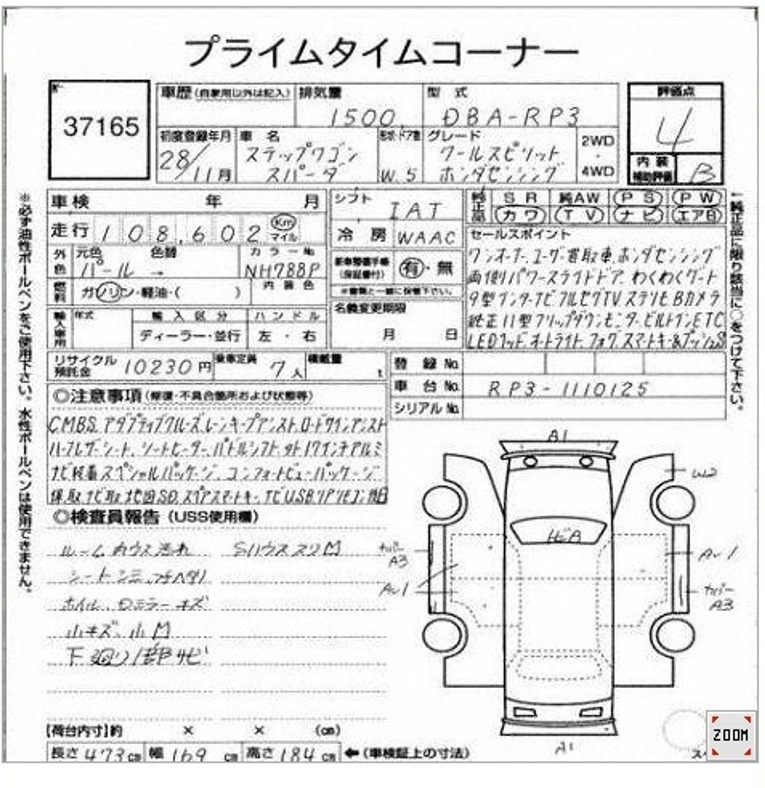 プライムタイムコーナー
37165
車歴(自家用以外は記入) 排気量 型式 評価点
1500 DBA-RP3 4
初度登録年月 車名 形状・ドア数 グレード 2WD・4WD 内装補助評価
28/11月 ステップワゴン スパーダ W.5 クールスピリット ホンダセンシング B
車検 年 月
走行 108,602 Km マイル
シフト IAT
冷房 WAAC
純正品 SR 純AW PS PW
カワ TV ナビ エアB
外色 元色 パール 色替 → カラーNo. NH788P
燃料 ガソリン・軽油・( ) 内装色
輸入車用 年式 輸入区分 ハンドル
ディーラー・並行 左・右
新車整備手帳(保証書付) 有・無
※書類と一緒に保管下さい。
名義変更期限
月 日
セールスポイント
ワンオーナー.ユーザー買取車.ホンダセンシング
両側パワースライドドア.わくわくゲート
9型インターナビ フルセグTV ステリモ Bカメラ
純正11型フリップダウンモニター.ビルトインETC
LEDヘッド.オートライト.フォグ.スマートキー&プッシュS
リサイクル預託金 10230円 乗車定員 7人 積載量 t
登録No.
車台No. RP3-1110125
シリアルNo.
◎注意事項(修復・不具合箇所および状態等)
CMBS.アダプティブクルーズ.レーンキープアシスト.ロードサインアシスト
ハーフレザーシート.シートヒーター.パドルシフト.オプ17インチアルミ
ナビ装着スペシャルパッケージ.コンフォートビューパッケージ
保.取.ナビ取.地図SD.スペアスマートキー.
◎検査員報告(USS使用欄)
ルーム内ウス汚れ Sハウス スリM
シート シミ.
ホイル.Dミラー キズ
小キズ.小M
下廻り1部サビ
A1
W2
ガA
カバー A3
AU1
AU1
カバー A3
A1
【荷台内寸】約 × × (cm)
長さ 473cm 幅 169cm 高さ 184cm ←(車検証上の寸法)
※必ず油性ボールペンをご使用下さい。水性ボールペンは使用できません。
↑純正品に限り該当に○をつけて下さい。
ZOOM